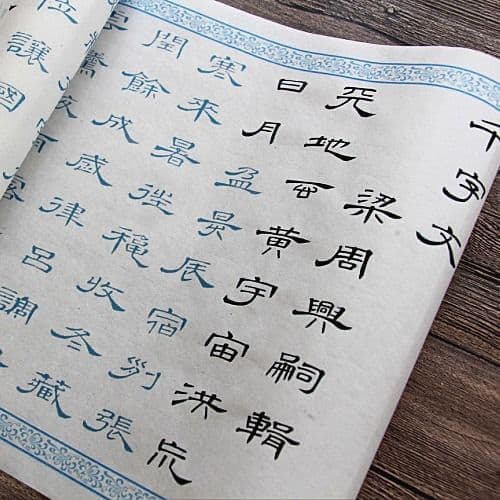 千字文
梁周興嗣輯
天地玄黃宇宙洪荒
日月盈昃辰宿列張
寒來暑往穐收冬藏
閏餘成歲律呂調
騰
位讓國